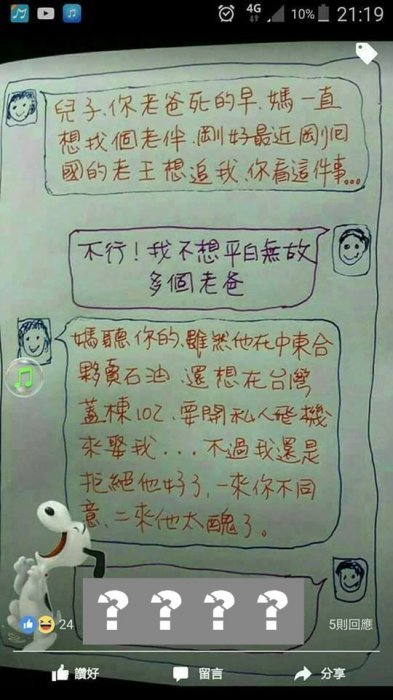 4G
10%
21:19
兒子、你老爸死的早、媽一直
想找個老伴、剛好最近剛回
國的老王想追我、你看這件事...
不行！我不想平白無故
多個老爸
媽聽你的、雖然他在中東合
夥賣石油、還想在台灣
蓋棟102、要開私人飛機
來娶我...不過我還是
拒絕他好了，一來你不同
意、二來他太醜了。
? ? ? ?
24
5則回應
讚好
留言
分享